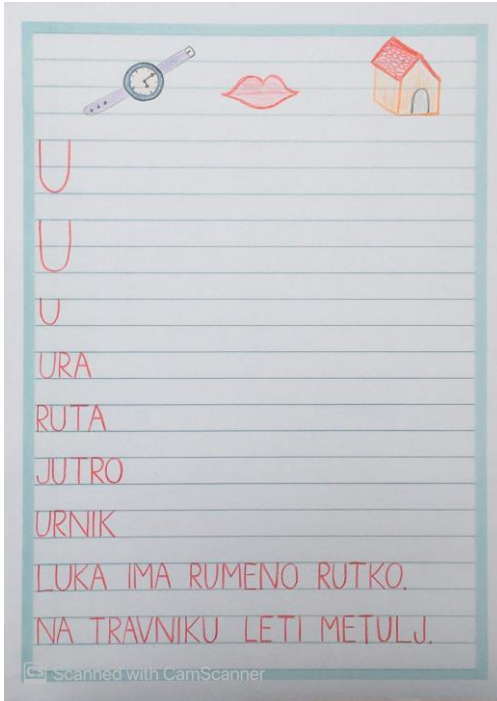 U
U
U
URA
RUTA
JUTRO
URNIK
LUKA IMA RUMENO RUTKO.
NA TRAVNIKU LETI METULJ.
CS Scanned with CamScanner